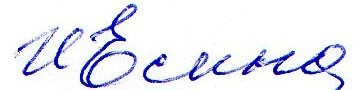 И Есина